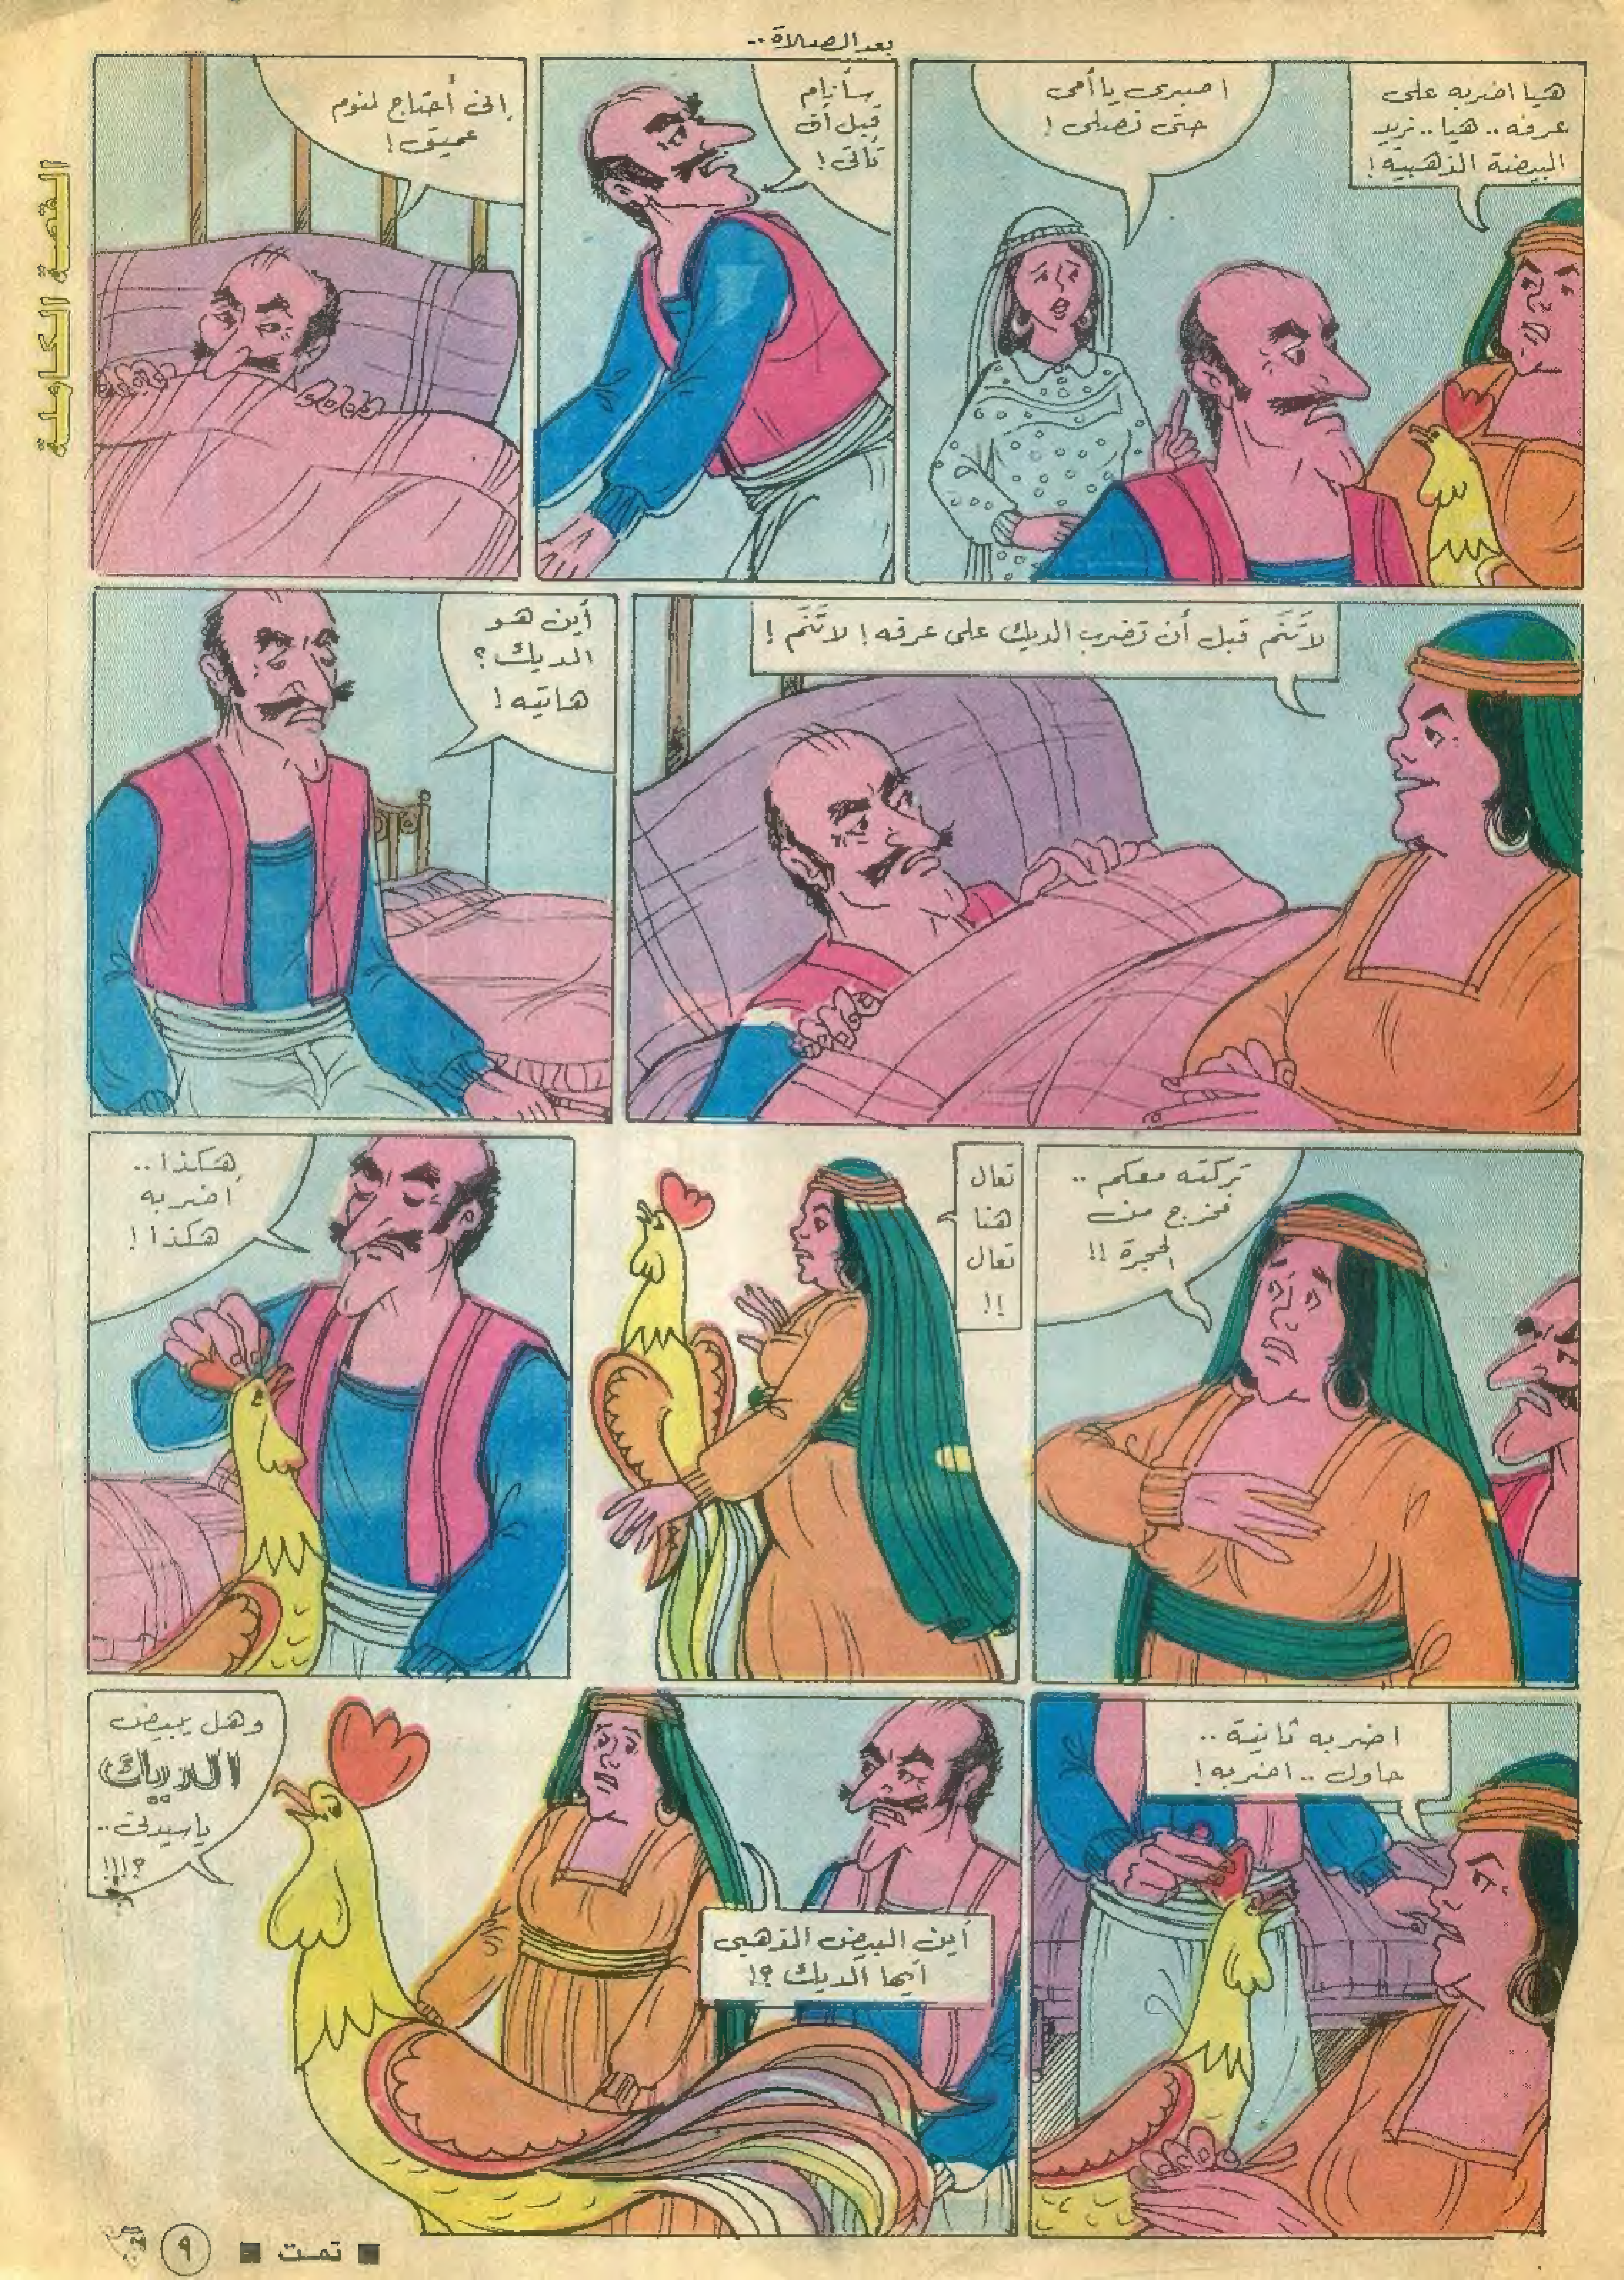 بعد الصلاة ..
القصة الكاملة
هيا اضربه على
عرفه .. هيا .. نريد
البيضة الذهبية !
اصبرى يا أمى
حتى نصلى !
سأنام
قبل أن
تأتى !
إنى أحتاج لنوم
عميق !
لا تَنَم قبل أن تضرب الديك على عرفه ! لا تَنَم !
أين هو
الديك ؟
هاتيه !
تركته معكم ..
فخرج من
الحجرة !!
تعال
هنا
تعال
!!
هكذا ..
أضربه
هكذا !
اضربه ثانية ..
حاول .. اضربه !
أين البيض الذهبى
أيها الديك ؟!
وهل يبيض
الديك
ياسيدتى ..
؟!!!
■ تمت ■
٩